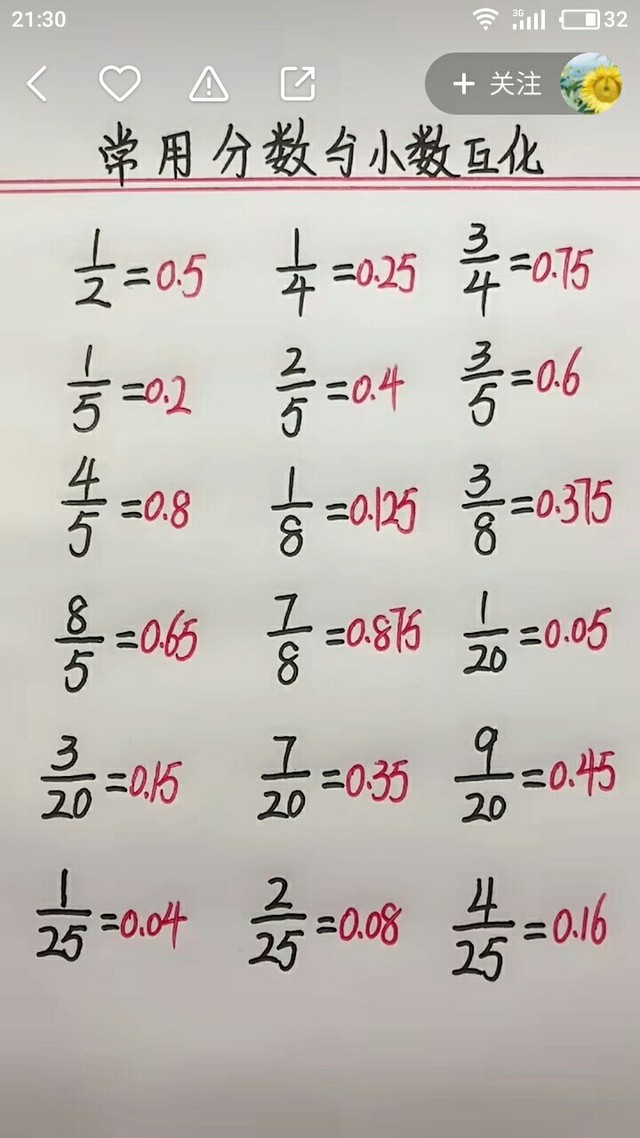 21:30 3G 32
+ 关注
常用分数与小数互化
1/2=0.5 1/4=0.25 3/4=0.75
1/5=0.2 2/5=0.4 3/5=0.6
4/5=0.8 1/8=0.125 3/8=0.375
8/5=0.65 7/8=0.875 1/20=0.05
3/20=0.15 7/20=0.35 9/20=0.45
1/25=0.04 2/25=0.08 4/25=0.16